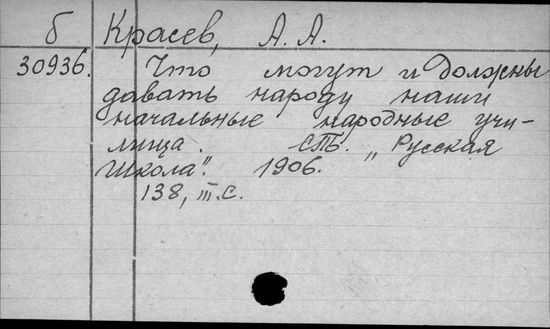 б Красев, А. А.
30936. Что могут и должны
давать народу наши
начальные народные учи-
лища. СПБ. „Русская
Школа". 1906.
138, III с.